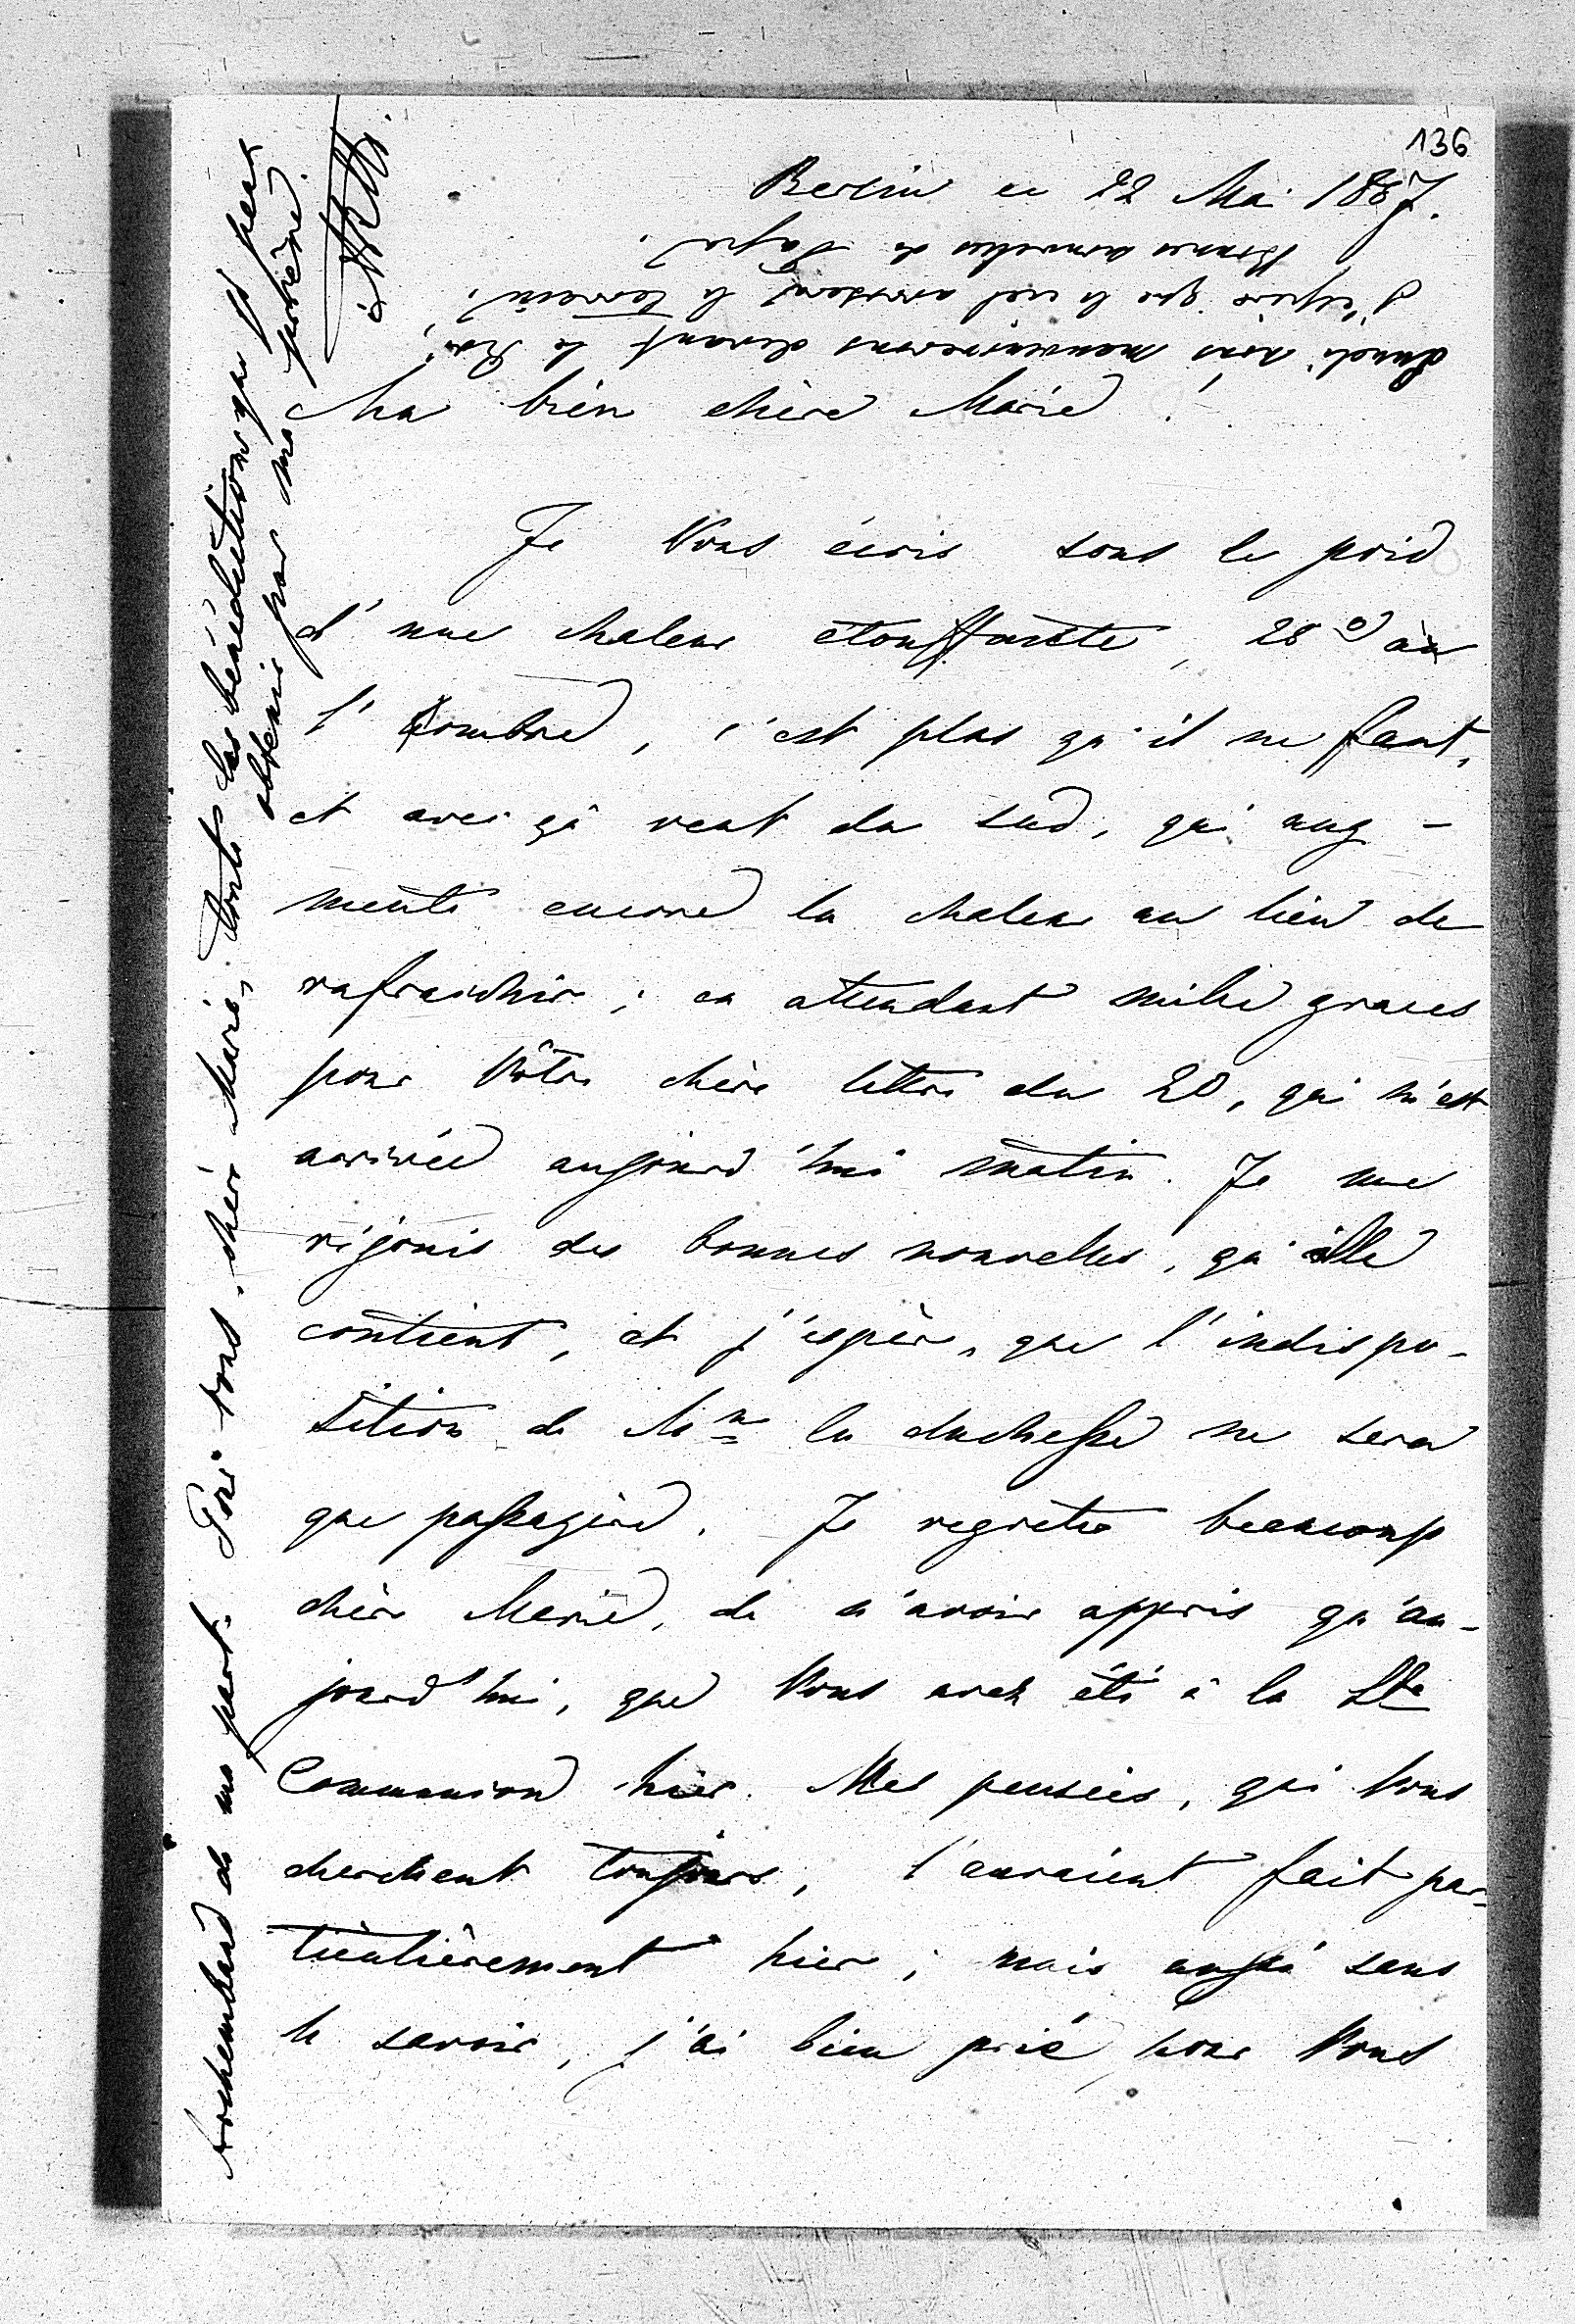 136
Berlin ce 22 Mai 1887.
Bonnes nouvelles de
J'espère que le ciel arrosera le terrain.
Lundi nous manoeuvrerons devant le Roi,
Ma bien chère Marie!
Je Vous écris sous le poid
d'une chaleur étouffante, 28° à
l'ombre, c'est plus qu'il ne faut,
et avec çà vent du sud, qui aug-
mente encore la chaleur au lieu de
rafraichir; en attendant mille graces
pour Vôtre chère lettre du 20, qui m'est
arrivée aujourd'hui matin. Je me
réjouis des bonnes nouvelles, qu'elle
contient, et j'espère, que l'indispo-
sition de Me la duchesse ne sera
que passagère. Je regrette beaucoup
chère Marie, de n'avoir appris qu'au-
jourd'hui, que Vous avez été à la Ste
Communion hier. Mes pensées, qui Vous
cherchent toujours, l'auraient fait par-
ticulièrement hier; mais aussi sans
le savoir, j'ai bien prié pour Vous
Archembaud de ma part. Pour Vous, chère Marie, toutes les bénédictions que je peux
obtenir par ma prière.